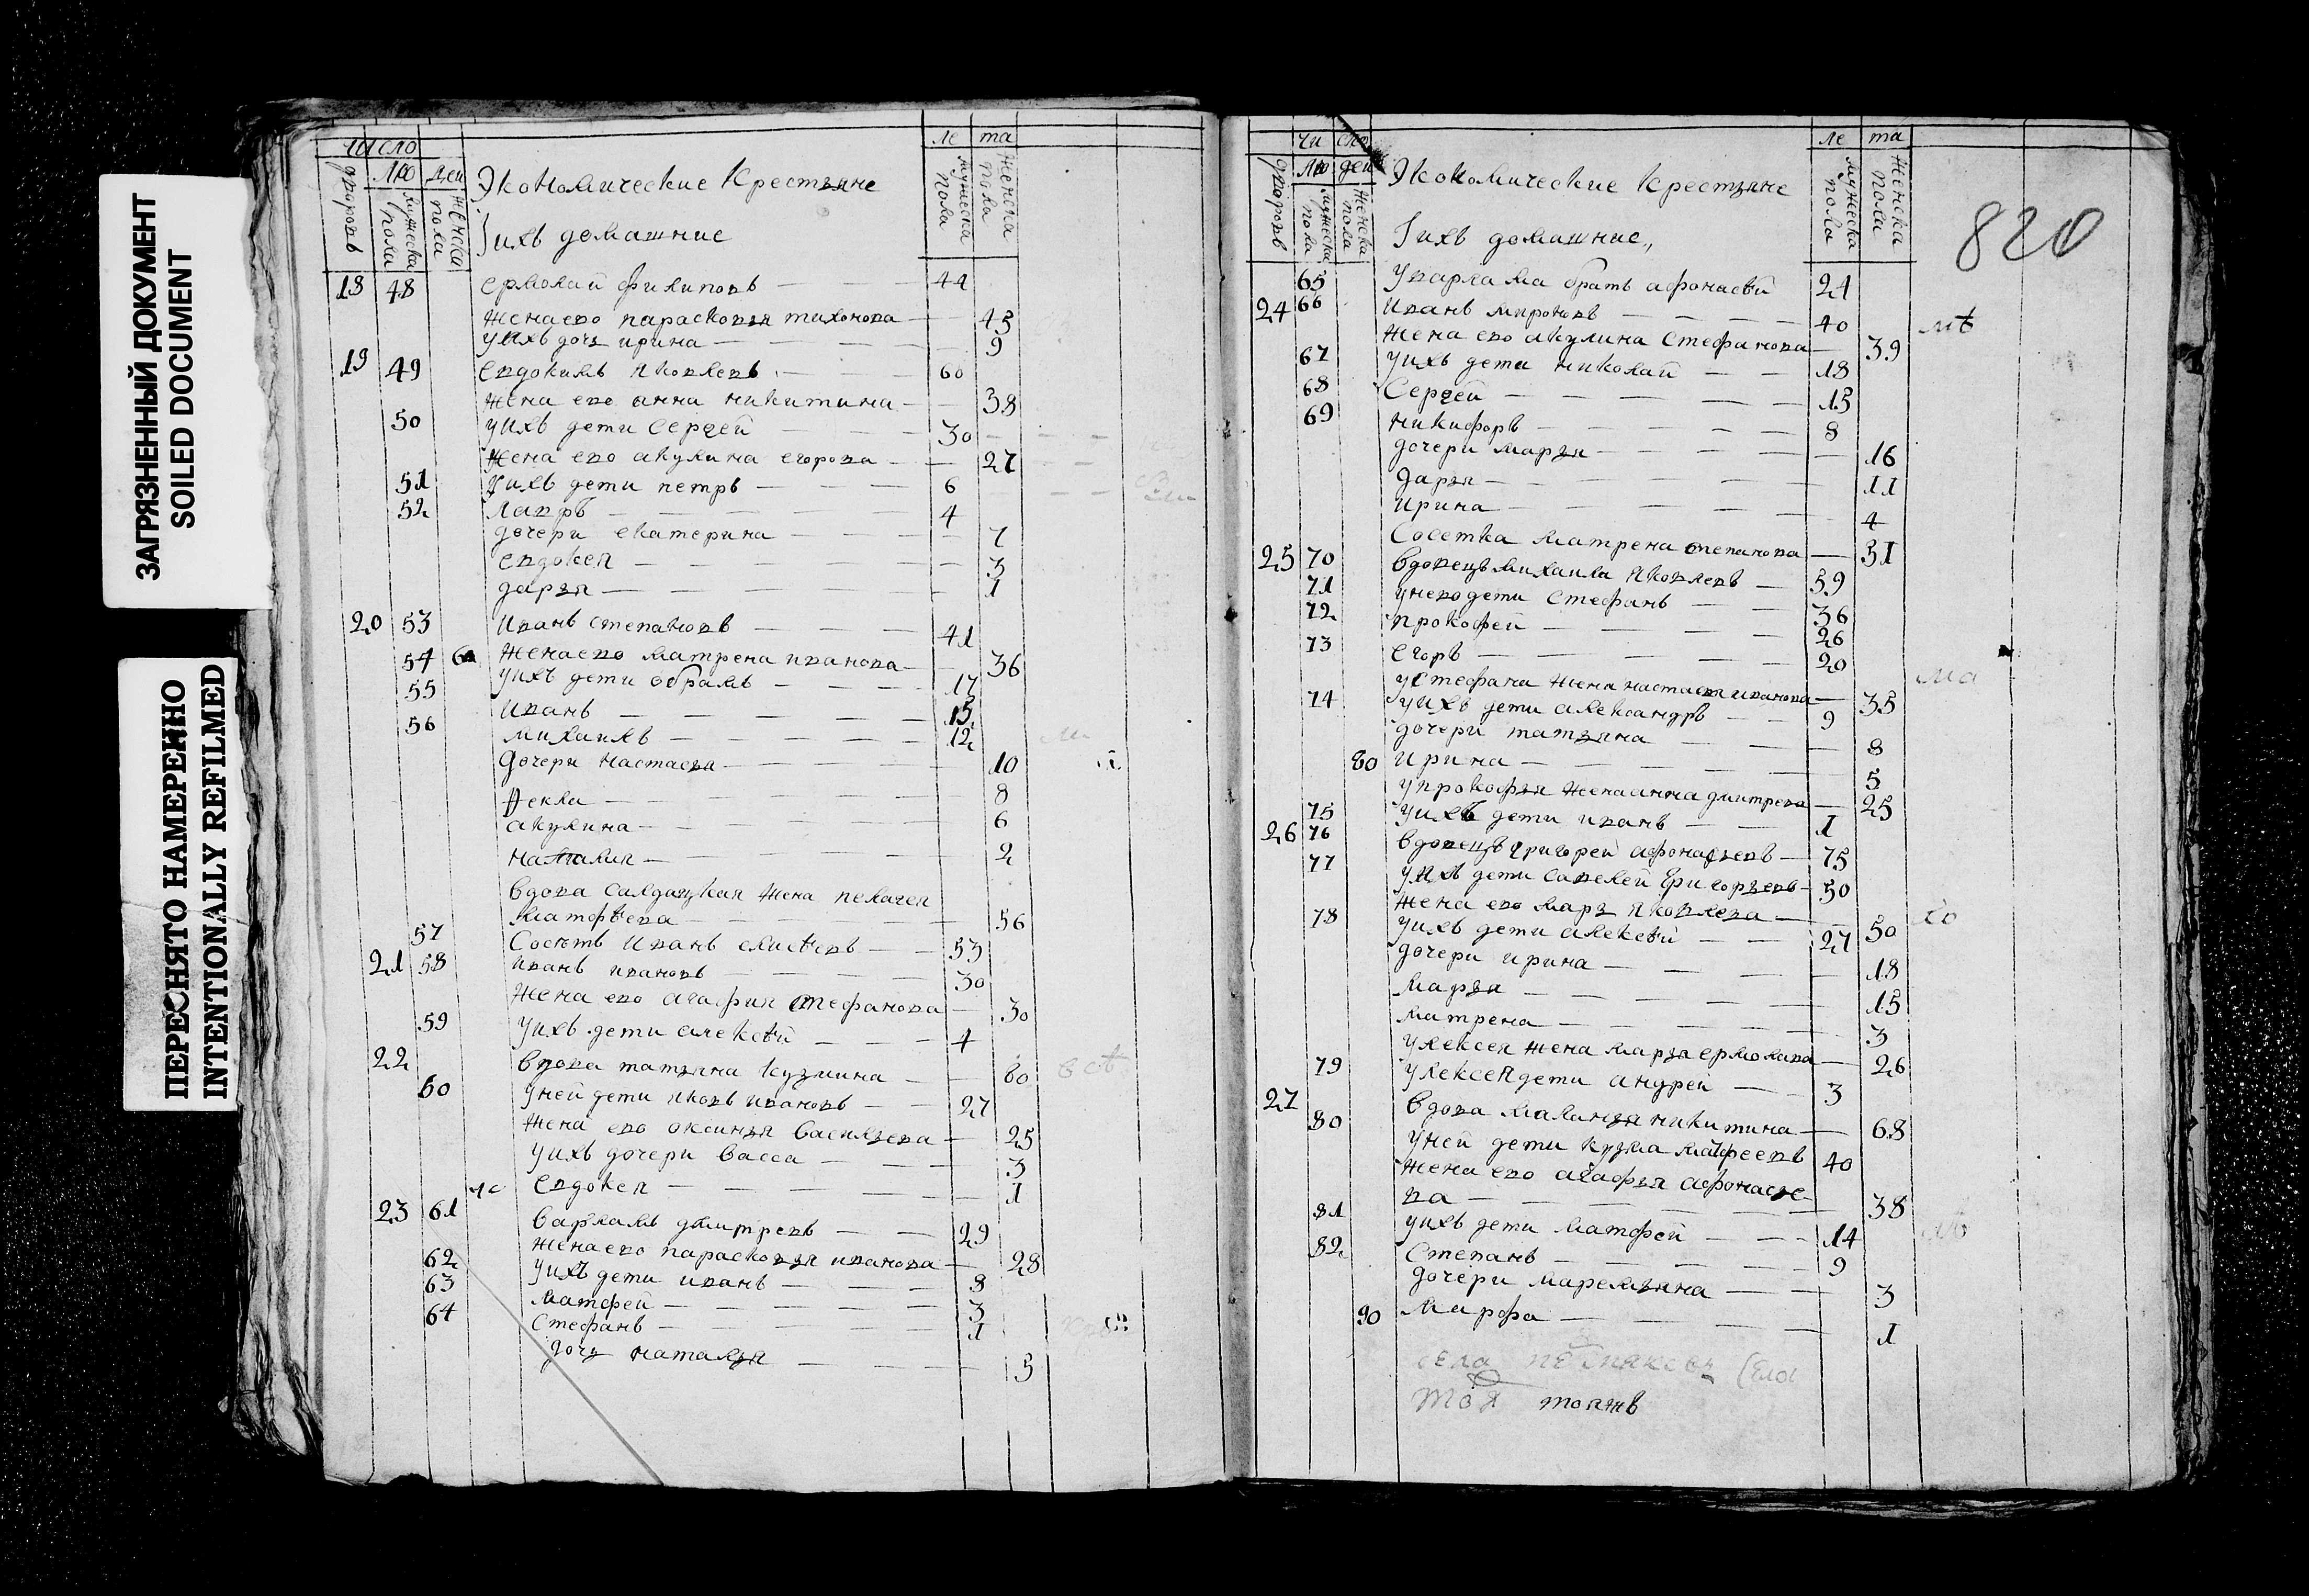 ЗАГРЯЗНЕННЫЙ ДОКУМЕНТ
SOILED DOCUMENT
ПЕРЕСНЯТО НАМЕРЕННО
INTENTIONALLY REFILMED
число ле та
дворовъ лю дей Экономические Крестьяне мужеска пола женска пола
мужеска пола женска пола Iихъ домашние
18 48 ермолай филиповъ 44
жена ево парасковья тихонова 45
уихъ дочь ирина 9
19 49 евдокимъ яковлевъ 60
жена ево анна никитина 38
50 уихъ дети Сергей 30
жена ево акулина егорова 27
51 уихъ дети петръ 6
52 лавръ 4
дочери екатерина 7
евдокея 3
дарья 1
20 53 иванъ степановъ 41
жена ево матрена иванова 36
54 60 уихъ дети обрамъ 17
55 иванъ 15
56 михаилъ 12
дочери настасья 10
Фекла 8
акулина 6
наталия 2
вдова салдацкая жена пелагея
матфѣева 56
57 Сосѣтъ иванъ 53
21 58 иванъ ивановъ 30
жена ево агафия стефанова 30
59 уихъ дети алексѣй 4
22 вдова татьяна кузмина 60
60 уней дети яковъ ивановъ 27
жена ево оксинья васильева 25
уихъ дочери васса 3
евдокея 1
23 61 варламъ дмитревъ 29
жена ево парасковья иванова 28
62 уихъ дети иванъ 8
63 матфей 3
64 Стефанъ 1
дочь наталья 5
чи сло ле та
дворовъ лю дей Экономические крестьяне мужеска пола женска пола
мужеска пола женска пола Iихъ домашние
820
65 уварлама братъ афонасѣй 21
24 66 иванъ мироновъ 40
жена ево акулина Стефанова 39
67 уихъ дети николай 18
68 Сергей 15
69 никифоръ 8
дочери марья 16
дарья 11
ирина 4
Сосетка матрена степанова 31
25 70 вдовецъ михаила яковлевъ 59
71 унево дети Стефанъ 36
72 прокофей 26
73 егоръ 20
устефана жена настасья иванова 35
74 уихъ дети александръ 9
дочери татьяна 8
80 ирина 5
упрокофья жена анна дмитрева 25
75 уихъ дети иванъ 1
26 76 вдовецъ григорей афонасьевъ 75
77 уихъ дети савелей григорьевъ 50
жена ево марь яковлева 50
78 уихъ дети алексѣй 27
дочери ирина 18
марья 15
матрена 3
улексея жена марья ермолава 26
79 улексея дети андрей 3
27 вдова маланья никитина 68
80 уней дети кузма матфеевъ 40
жена ево агафья афонасье
ва 38
81 уихъ дети матфей 14
82 Степанъ 9
дочери маремьяна 3
90 марфа 1
тоя тоянъ